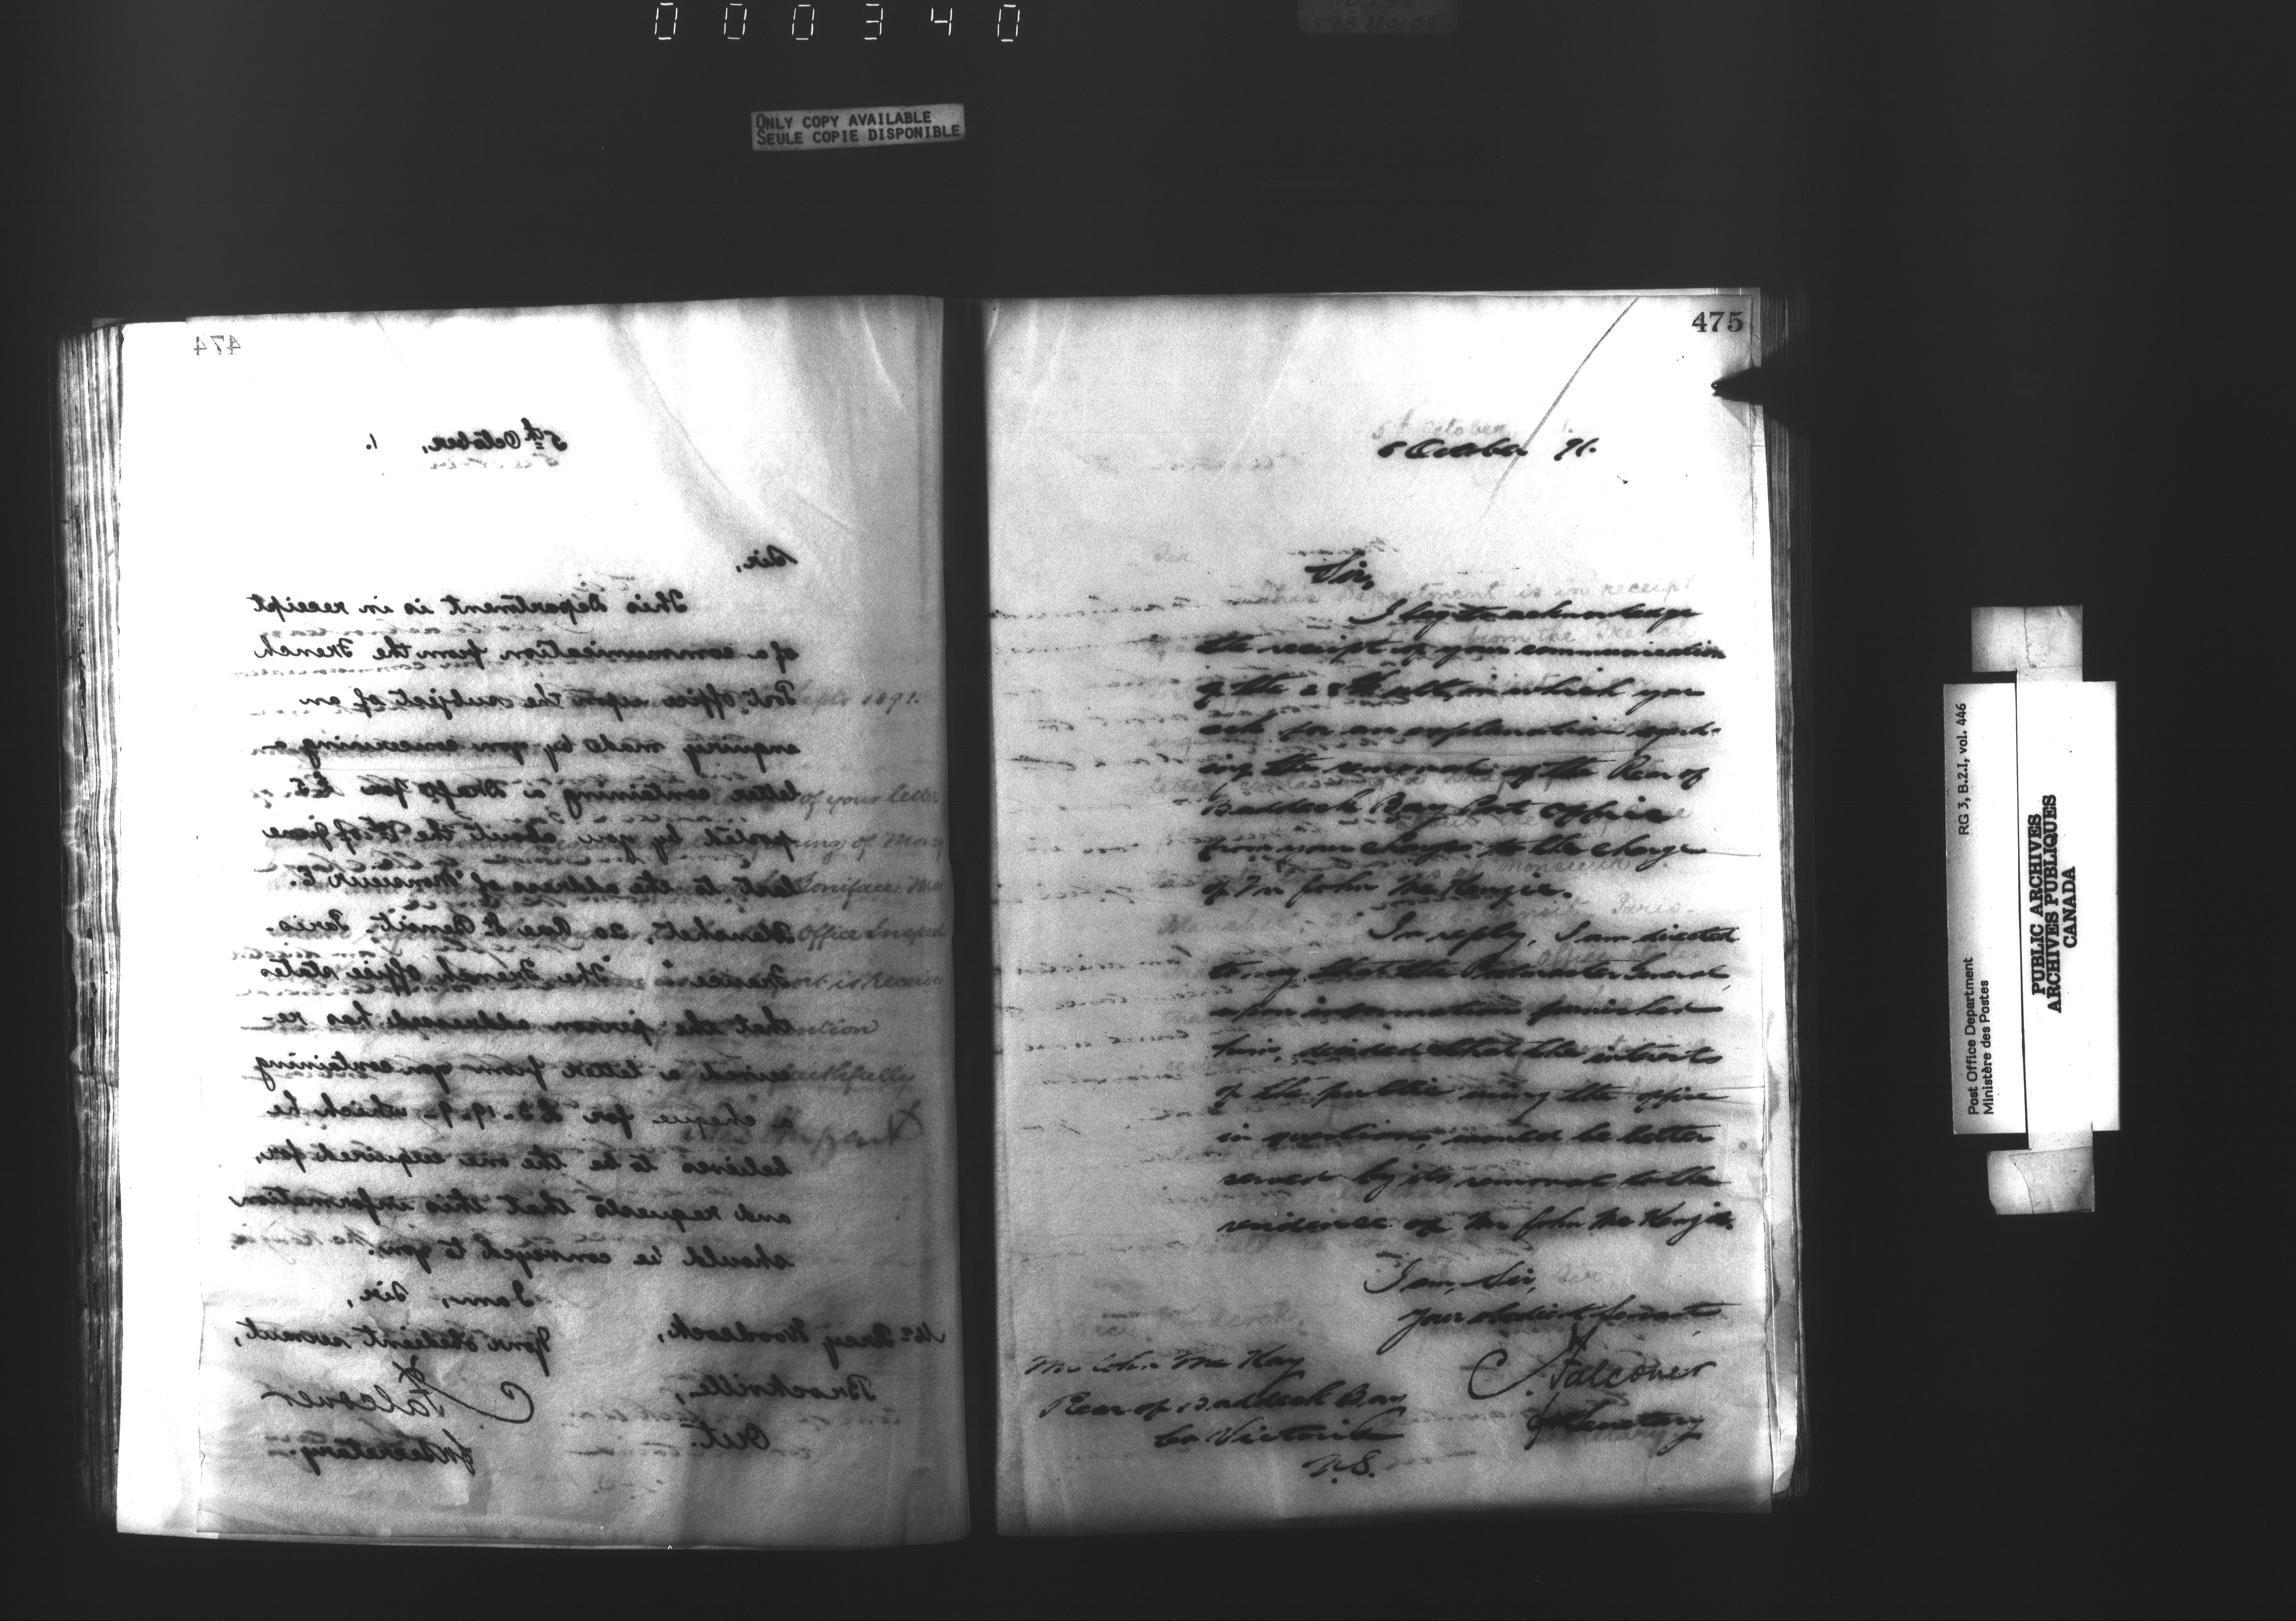 000340
ONLY COPY AVAILABLE
SEULE COPIE DISPONIBLE
474
5th October, 1.
Sir,
This Department is in receipt
of a communication from the French
Post office upon the subject of an
enquiry made by you concerning a
letter containing a Draft for £3.
posted by you about the of June
last to the address of Monsieur E.
20 Rue St Benoit, Paris.
France. The French Office states
that the person addressed has re-
ceived a letter from you containing
a cheque for £3-19-9- which he
believes to be the one enquired for,
and requests that this information
should be conveyed to you.
I am, Sir,
Your obedient servant,
Falconer
for Secretary.
Mr Woodcock,
Brockville,
Ont.
475
5 October 91.
Sir,
I beg to acknowledge
the receipt of your communication
of the 28th ulto, in which you
ask for an explanation regard-
ing the removal of the Rear of
Baddeck Bay Post office
from your charge to the charge
of Mr John McKenzie.
In reply, I am directed
to say that the Postmaster General,
upon information furnished
him, decided that the interests
of the public using the office
in question, would be better
served by its removal to the
residence of Mr John McKenzie.
I am, Sir,
Your obedient Servant,
Falconer
for Secretary
Mr John McKay
Rear of Baddeck Bay
Co Victoria
N.S.
Post Office Department
Ministère des Postes
RG 3, B.2.I, vol. 446
PUBLIC ARCHIVES
ARCHIVES PUBLIQUES
CANADA